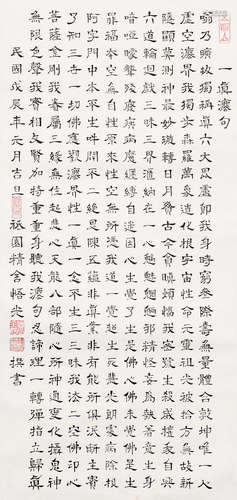 一真灋句
嗡乃曠劫獨稱真六大毘盧即我身時窮三際壽無量體合乾坤唯一人
虛空灋界我獨步森羅萬象造化根宇宙性命元靈祖光被十方無故新
隱顯莫測神最妙璇轉日月貫古今貪瞋煩惱我密號生殺威權我自興
六道輪回戲三昧三界匯納在一心魑魅魍魎邪精怪妄為執著意生身
喑啞矇聾殘廢疾病魔纏縛自迷因心生覺了生是佛心佛未覺佛是生
罪福本空無自性原來性空無所憑我道一覺超生死慧光朗照病除根
阿字門中本不生吽開不二絕思陳五蘊非真業非有能所俱泯斷主賓
了知三世一切佛應觀灋界性一真一念不生三三昧我法二空佛印心
菩薩金剛我眷屬三緣無住起悲心天龍八部隨心所神通變化攝鬼神
無限色聲我實相文賢加持重重身聽我灋句認諦理一轉彈指立歸真
民國戊辰年元月吉旦 祇園精舍悟光 撰書